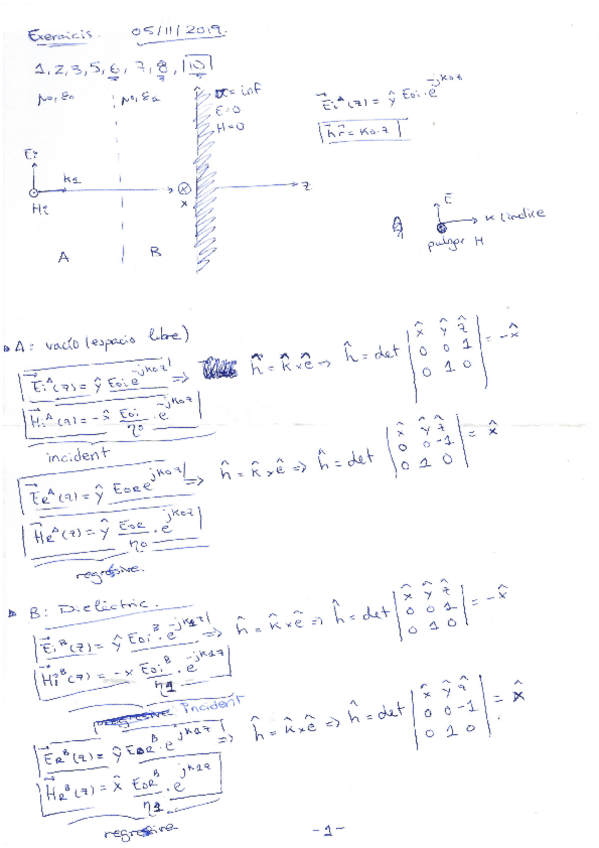 Exercicis. 05/11/2019.
1, 2, 3, 5, 6, 7, 8, 10
μ0, ε0 μ0, ε2 σ = inf
E=0
H=0
E⃗i^A(z) = ŷ E0i · e^-jk0z
k⃗r⃗ = k0·z
Ei
k1
Hi
x
z
A B
E
k (índice
pulgar H
A: vacío (espacio libre)
E⃗i^A(z) = ŷ E0i e^-jk0z ⇒ ĥ = k̂ × ê ⇒ ĥ = det | x̂ ŷ ẑ | 0 0 1 | 0 1 0 | = -x̂
H⃗i^A(z) = -x̂ E0i/η0 · e^-jk0z
incident
E⃗R^A(z) = ŷ E0R e^jk0z ⇒ ĥ = k̂ × ê ⇒ ĥ = det | x̂ ŷ ẑ | 0 0 -1 | 0 1 0 | = x̂
H⃗R^A(z) = ŷ E0R/η0 · e^jk0z
regresive.
B: Dielèctric.
E⃗i^B(z) = ŷ E0i^B · e^-jk1z ⇒ ĥ = k̂ × ê ⇒ ĥ = det | x̂ ŷ ẑ | 0 0 1 | 0 1 0 | = -x̂
H⃗i^B(z) = -x E0i^B/η1 · e^-jk1z
incident
E⃗R^B(z) = ŷ E0R^B · e^jk1z ⇒ ĥ = k̂ × ê ⇒ ĥ = det | x̂ ŷ ẑ | 0 0 -1 | 0 1 0 | = x̂
H⃗R^B(z) = x̂ E0R^B/η1 · e^jk1z
regresive
-1-